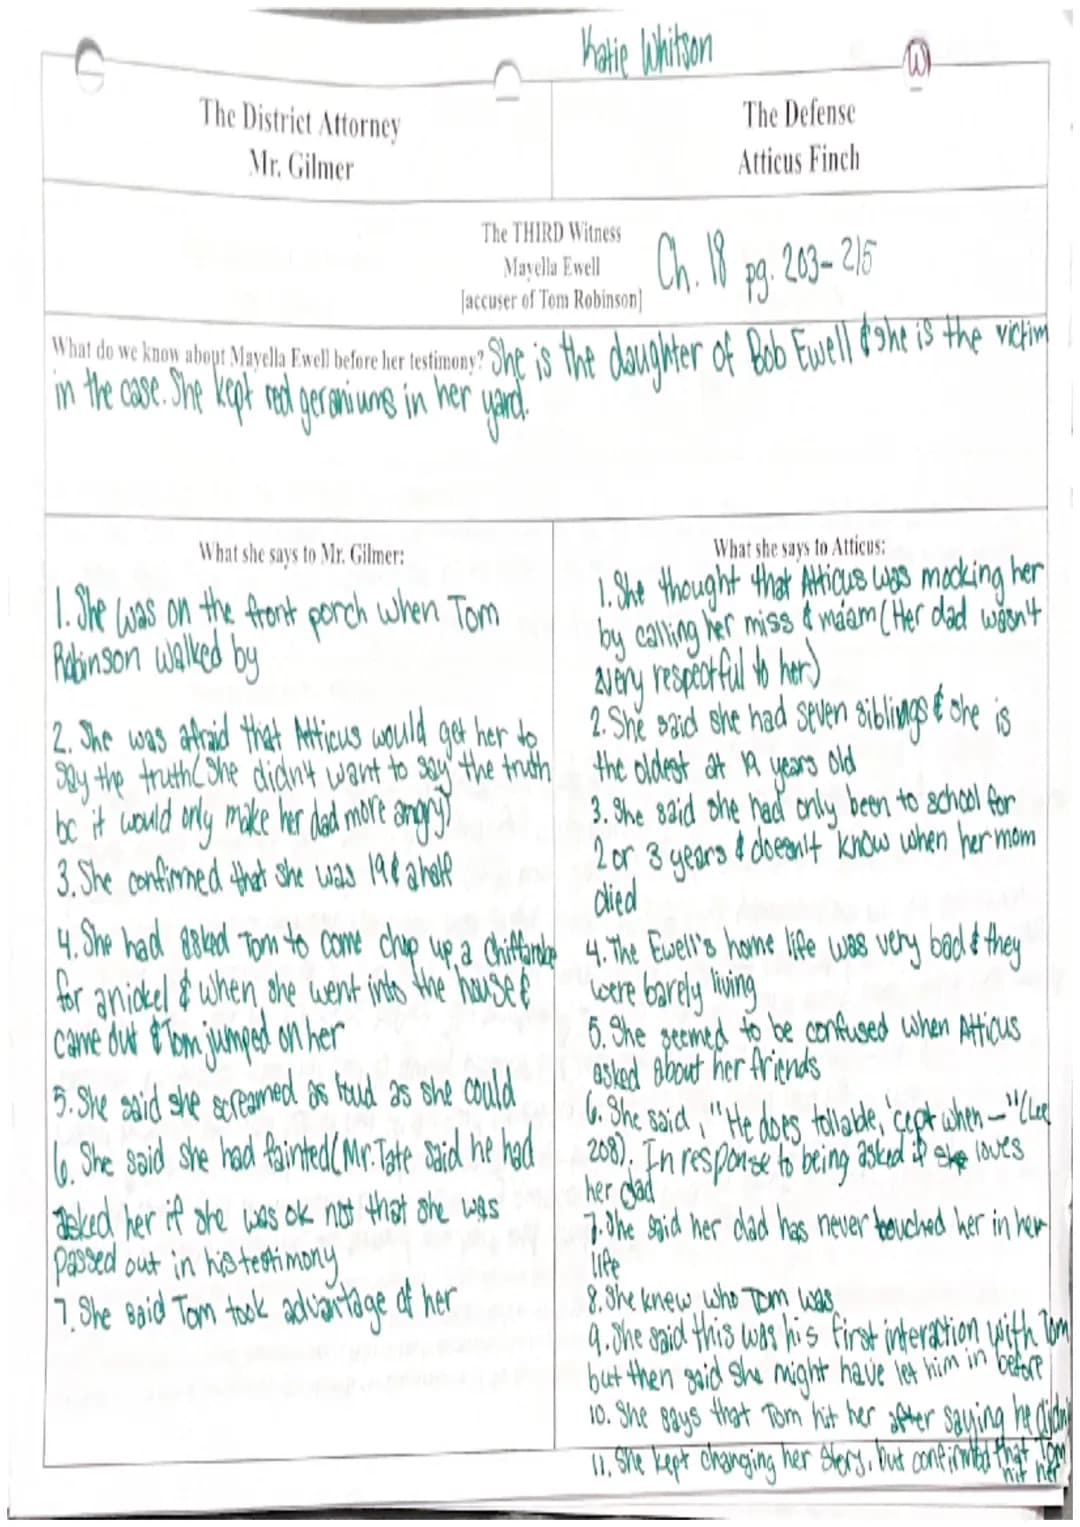 Katie Whitson
W
The District Attorney
Mr. Gilmer
The Defense
Atticus Finch
The THIRD Witness
Mayella Ewell
[accuser of Tom Robinson]
Ch. 18 pg. 203-215
What do we know about Mayella Ewell before her testimony? She is the daughter of Bob Ewell & she is the victim
in the case. She kept red geraniums in her yard.
What she says to Mr. Gilmer:
1. She was on the front porch when Tom
Robinson walked by
2. She was afraid that Atticus would get her to
say the truth (She didn't want to say the truth
bc it would only make her dad more angry)
3. She confirmed that she was 19 & a half
4. She had asked Tom to come chop up a chiffarobe
for a nickel & when she went into the house &
came out & Tom jumped on her
5. She said she screamed as loud as she could
6. She said she had fainted (Mr. Tate said he had
asked her if she was ok not that she was
passed out in his testimony
7. She said Tom took advantage of her
What she says to Atticus:
1. She thought that Atticus was mocking her
by calling her miss & ma'am (Her dad wasn't
very respectful to her)
2. She said she had seven siblings & she is
the oldest at 19 years old
3. She said she had only been to school for
2 or 3 years & doesn't know when her mom
died
4. The Ewell's home life was very bad & they
were barely living
5. She seemed to be confused when Atticus
asked about her friends
6. She said, "He does tollable, 'cept when —" (Lee
208). In response to being asked if she loves
her dad
7. She said her dad has never touched her in her
life
8. She knew who Tom was
9. She said this was his first interaction with Tom
but then said she might have let him in before
10. She says that Tom hit her after saying he didn't
11. She kept changing her story, but confirmed that Tom
hit her